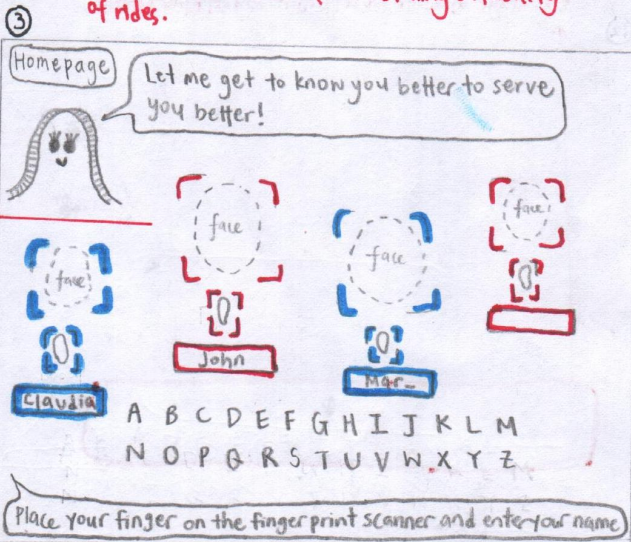 of rides.
3
Homepage
Let me get to know you better to serve
you better!
face
face
face
face
John
Mar_
Claudia
A B C D E F G H I J K L M
N O P Q R S T U V W X Y Z
Place your finger on the fingerprint scanner and enter your name